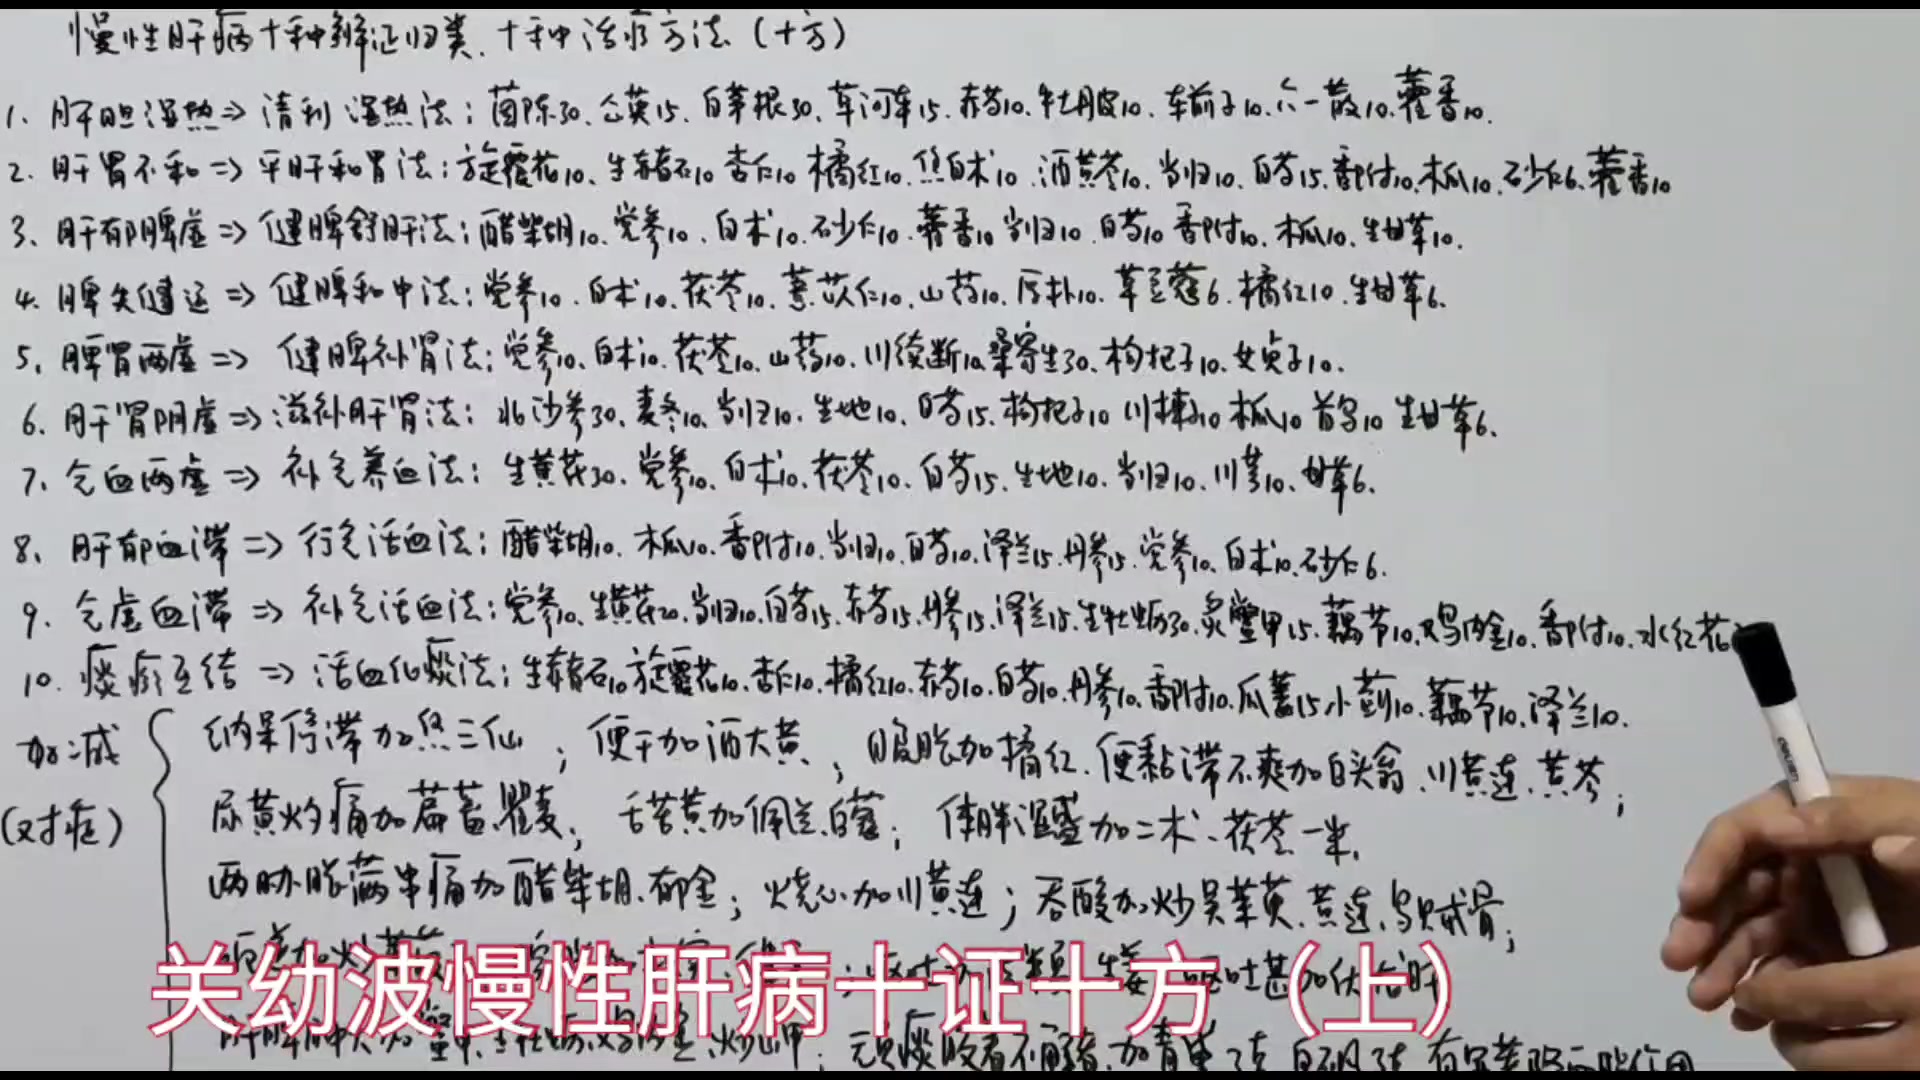 慢性肝病十种辨证归类、十种治疗方法（十方）
1. 肝胆湿热⇒清利湿热法：茵陈30、公英15、白茅根30、草河车15、赤芍10、牡丹皮10、车前子10、六一散10、藿香10.
2. 肝胃不和⇒平肝和胃法：旋覆花10、生赭石10 杏仁10 橘红10、焦白术10、酒黄芩10、当归10、白芍15、香附10、木瓜10、砂仁6、藿香10
3、肝郁脾虚⇒健脾舒肝法：醋柴胡10、党参10、白术10、砂仁10、藿香10 当归10、白芍10 香附10、木瓜10、生甘草10.
4. 脾失健运⇒健脾和中法：党参10、白术10、茯苓10、薏苡仁10、山药10、厚朴10、草豆蔻6、橘红10、生甘草6.
5. 脾肾两虚⇒健脾补肾法：党参10、白术10、茯苓10、山药10、川续断10、桑寄生30、枸杞子10、女贞子10.
6. 肝肾阴虚⇒滋补肝肾法：北沙参30、麦冬10、当归10、生地10、白芍15、枸杞子10 川楝子10 木瓜10 首乌10 生甘草6.
7. 气血两虚⇒补气养血法：生黄芪30、党参10、白术10、茯苓10、白芍15、生地10、当归10、川芎10、甘草6.
8、肝郁血滞⇒行气活血法：醋柴胡10、木瓜10、香附10、当归10、白芍10、泽兰15、丹参15、党参10、白术10、砂仁6.
9. 气虚血滞⇒补气活血法：党参10、生黄芪20、当归10、白芍15、赤芍15、丹参15、泽兰15、生牡蛎30、炙鳖甲15、藕节10、鸡内金10、香附10、水红花
10. 痰瘀互结⇒活血化痰法：生赭石10 旋覆花10、杏仁10、橘红10、赤芍10、白芍10、丹参10、香附10、瓜蒌15、小蓟10、藕节10、泽兰10.
加减（对症）
纳呆停滞加焦三仙；便干加酒大黄；腹胀加橘红、便黏滞不爽加白头翁、川黄连、黄芩；
尿黄灼痛加萹蓄、瞿麦；舌苔黄加佩兰、白蔻；体胖湿盛加二术、茯苓一半.
两胁胀满串痛加醋柴胡、郁金；烧心加川黄连；吞酸加炒吴茱萸、黄连、乌贼骨；
生姜 呕吐甚加伏龙肝
关幼波慢性肝病十证十方（上）